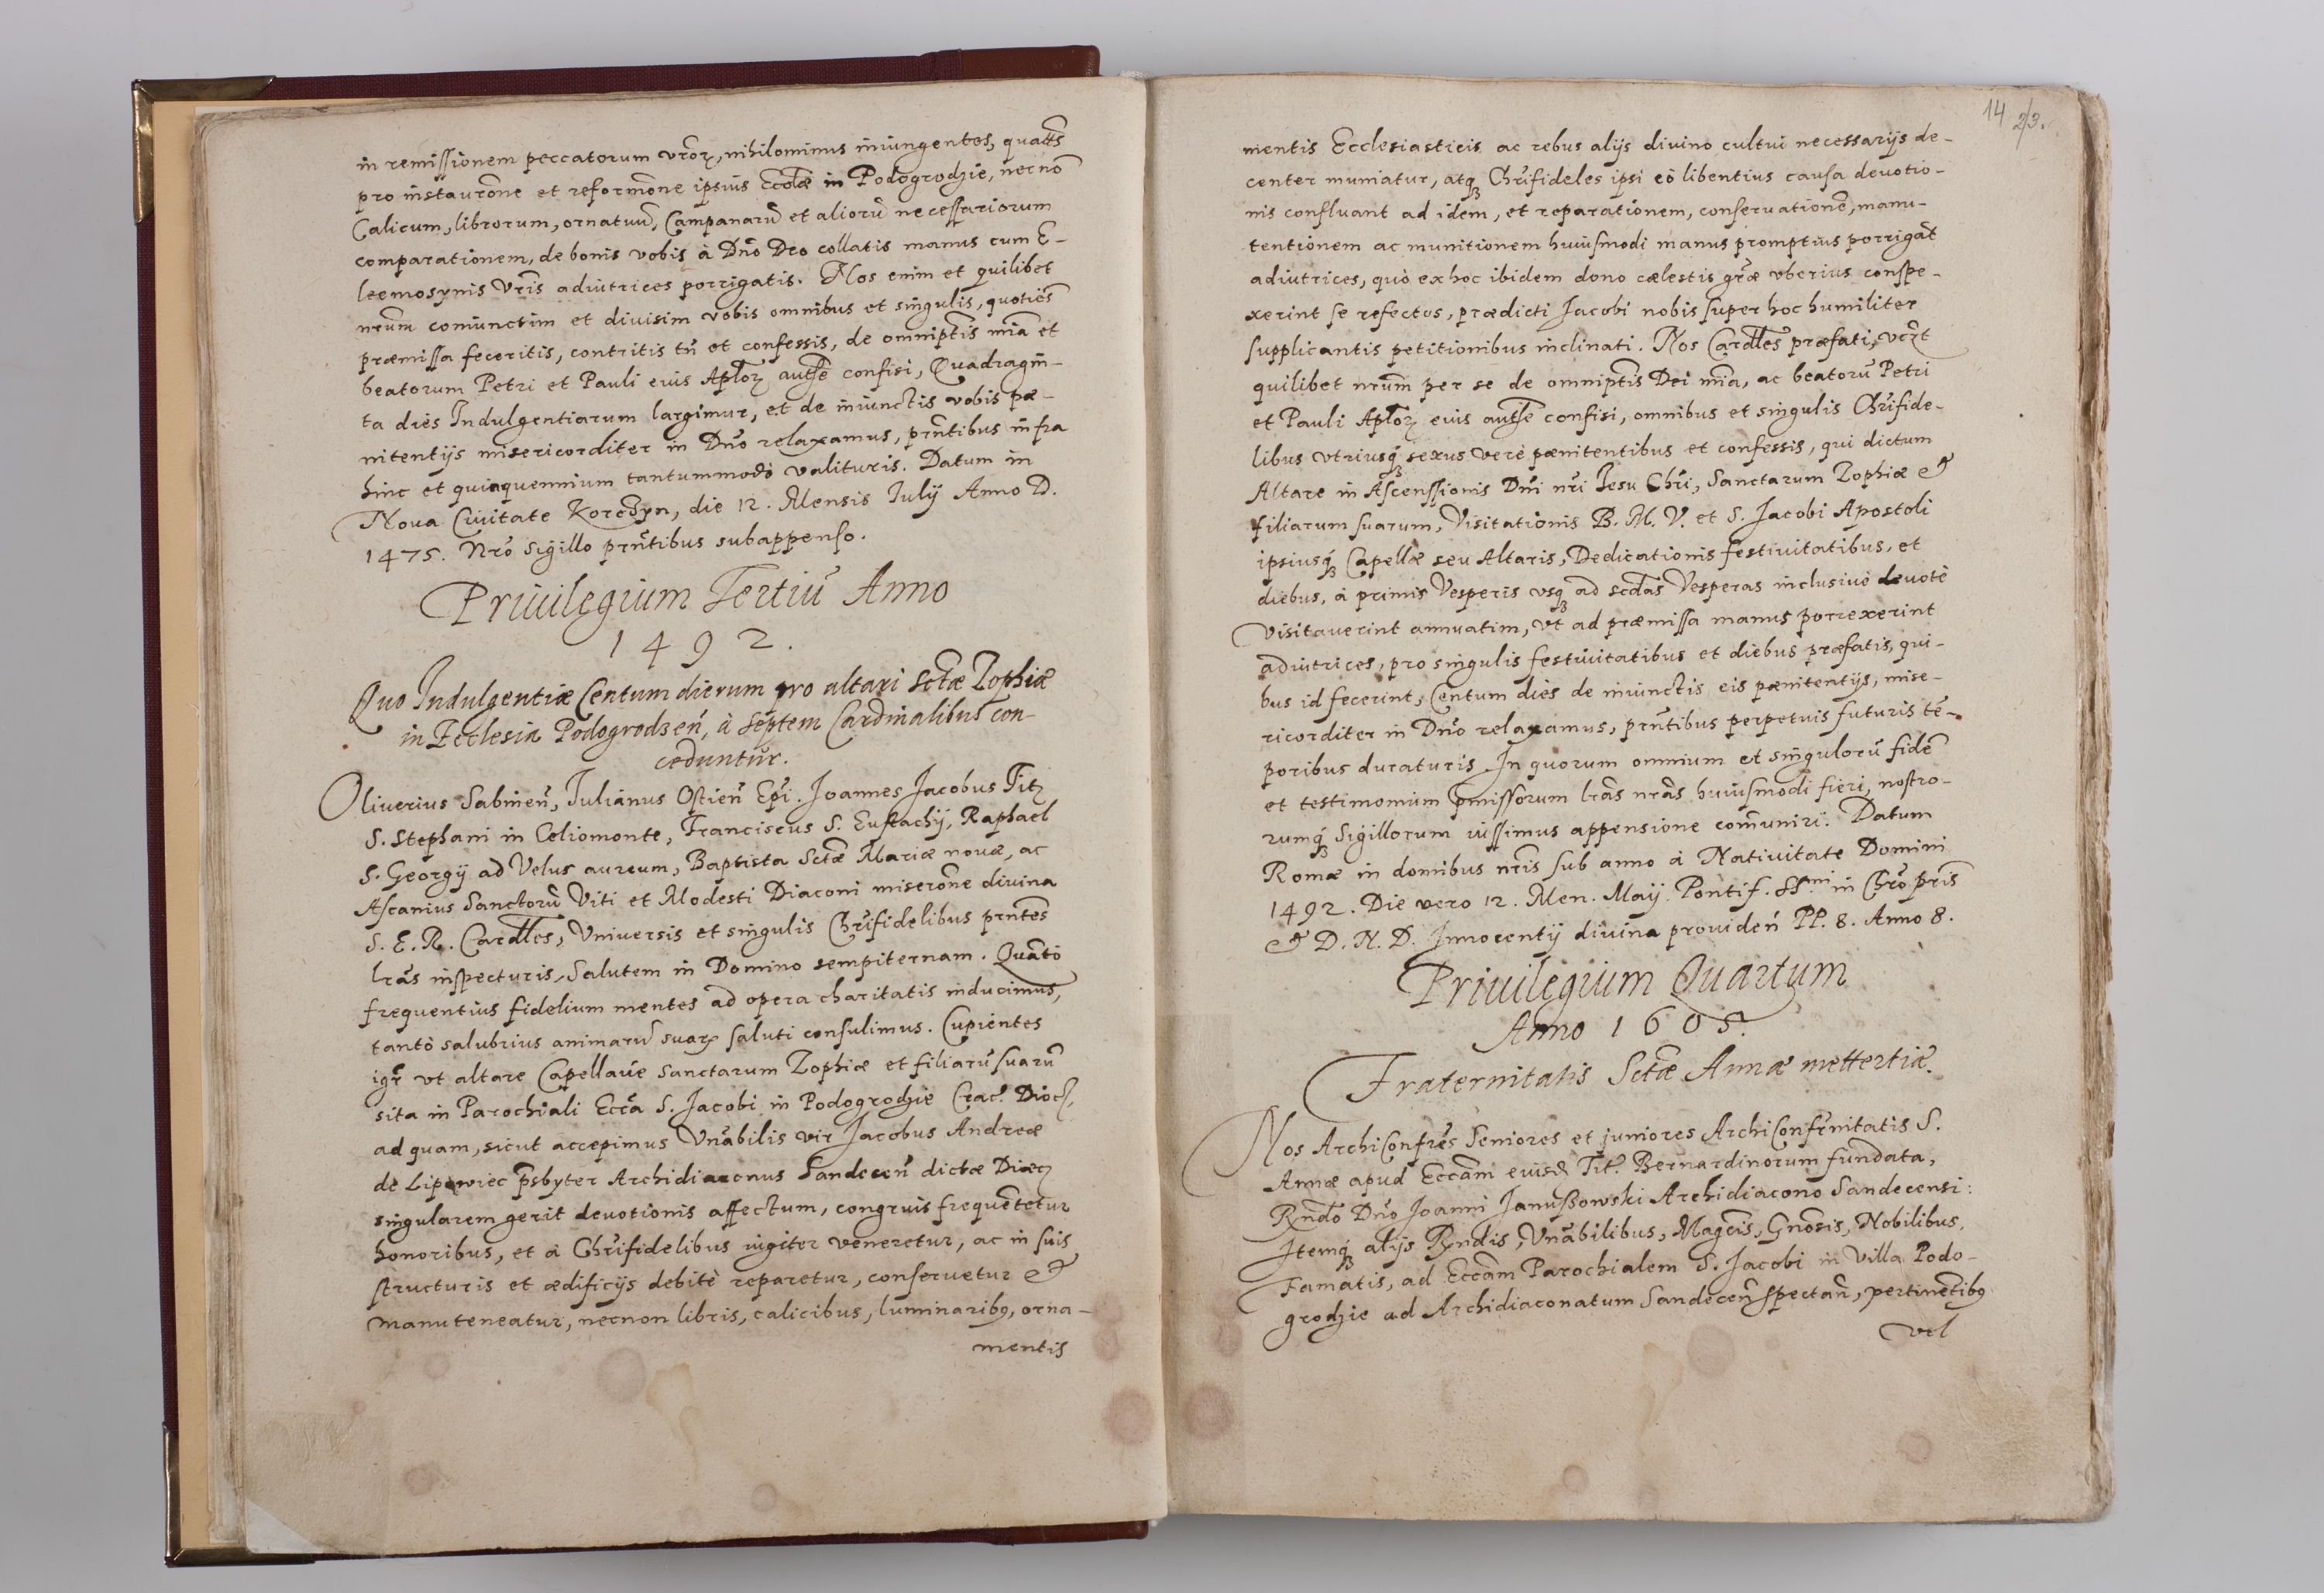 in remissionem peccatorum vrōrꝫ, nihilominus iniungentes, quatts̄
pro instaurōne et reformōne ipsius Eccłæ in Podogrodzie, necnō
Calicum, librorum, ornatuū, Campanarū et aliorū necessariorum
comparationem, de bonis vobis à Dnō Deo collatis manus cum E-
leemosynis Vrīs adiutrices porrigatis. Nos enim et quilibet
nrūm coniunctim et diuisim vobis omnibus et singulis, quotiēs
præmissa feceritis, contritis tn̄ et confessis, de omniptīs miā et
beatorum Petri et Pauli eius Aplōrꝫ auttē confisi, Quadragin̄-
ta dies Indulgentiarum largimur, et de iniunctis vobis pæ-
nitentijs misericorditer in Dnō relaxamus, prn̄tibus infra
hinc et quinquennium tantummodò valituris. Datum in
Noua Ciuitate Korczyn, die 12. Mensis Iulij Anno D.
1475. Nrō Sigillo prn̄tibus subappenso.
Priuilegium Tertiū Anno
1492.
Quo Indulgentiæ Centum dierum pro altari Sctæ Zophiæ
in Ecclesia Podogrodzen̄, à Septem Cardinalibus con-
ceduntur.
Oliuerius Sabinen̄, Iulianus Ostien̄ Epī. Ioannes Jacobus Titꝫ
S. Stephani in Celiomonte, Franciscus S. Eustachij, Raphael
S. Georgij ad Velus aureum, Baptista Sctæ Mariæ nouæ, ac
Ascanius Sanctorū Viti et Modesti Diaconi miserōne diuina
S. E. R. Cardłes, Vniuersis et singulis Chrīfidelibus prn̄tes
lrās inspecturis, Salutem in Domino sempiternam. Quātò
frequentius fidelium mentes ad opera charitatis inducimus,
tantò salubrius animarū suarꝫ saluti consulimus. Cupientes
igr̄ vt altare Capellaúe Sanctarum Zophiæ et filiarū suarū
sita in Parochiali Eccā S. Jacobi in Podogrodzie Crac. Diocꝫ,
ad quam, sicut accepimus Vnābilis vir Jacobus Andreæ
de Lipowiec p̄sbyter Archidiaconus Sandecen̄ dictæ Diæcꝫ
singularem gerit deuotionis affectum, congruis frequētetur
honoribus, et à Chrīfidelibus iugiter veneretur, ac in suis
structuris et ædificijs debitè reparetur, conseruetur et
manuteneatur, necnon libris, calicibus, luminaribꝰ, orna-
mentis
14 23.
mentis Ecclesiasticis ac rebus alijs diuino cultui necessarijs de-
center muniatur, atqꝫ Chrīfideles ipsi eò libentius causa deuotio-
nis confluant ad idem, et reparationem, conseruationē, manu-
tentionem ac munitionem huiusmodi manus promptius porrigāt
adiutrices, quò ex hoc ibidem dono cælestis grāæ vberius conspe-
xerint se refectos, prædicti Jacobi nobis super hoc humiliter
supplicantis petitionibus inclinati. Nos Cardłes præfati, vcr̄t
quilibet nrūm per se de omniptīs Dei miā, ac beatorū Petri
et Pauli Aplōrꝫ eius auttē confisi, omnibus et singulis Chrīfide-
libus vtriusqꝫ sexus verè pænitentibus et confessis, qui dictum
Altare in Ascenssionis Dn̄i nrī Iesu Chrī, Sanctarum Zophiæ et
filiarum suarum, Visitationis B. M. V. et S. Jacobi Apostoli
ipsiusqꝫ Capellæ seu Altaris, Dedicationis festiuitatibus, et
diebus, à primis Vesperis vsqꝫ ad scdas Vesperas inclusiuè deuotè
visitauerint annuatim, vt ad præmissa manus porrexerint
adiutrices, pro singulis festiuitatibus et diebus præfatis, qui-
bus id fecerint, Centum dies de iniunctis eis pænitentijs, mise-
ricorditer in Dnō relaxamus, prn̄tibus perpetuis futuris tē-
poribus duraturis. In quorum omnium et singulorū fidē
et testimonium p̄missorum lrās nrās huiusmodi fieri, nostro-
rumqꝫ Sigillorum iussimus appensione comuniri. Datum
Romæ in domibus nrīs sub anno à Natiuitate Domini
1492. Die vero 12. Men. Maij. Pontif. SSmi in Chrō pris
et D. N. D. Innocentij diuina prouiden̄ PP. 8. Anno 8.
Priuilegium Quartum
Anno 1605.
Fraternitatis Sctæ Annæ mettertiæ.
Nos ArchiConfrēs Seniores et juniores ArchiConfrn̄itatis S.
Annæ apud Eccām eiusd Tit. Bernardinorum fundata,
Rndō Dnō Joanni Januszowski Archidiacono Sandecensi:
Jtemqꝫ alijs Rndis, Vnābilibus, Magcis, Gnōsis, Nobilibus,
Famatis, ad Eccām Parochialem S. Jacobi in Villa Podo-
grodzie ad Archidiaconatum Sandecen̄ spectan̄, pertinētibꝰ
vel